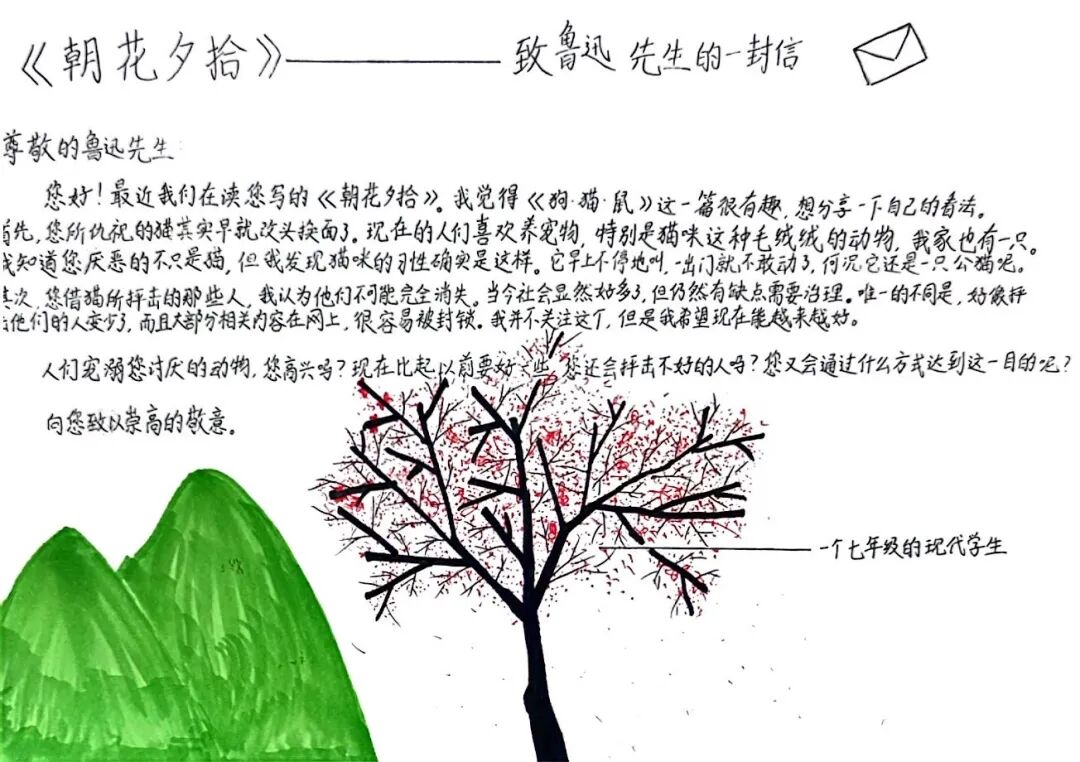 《朝花夕拾》——致鲁迅先生的一封信
尊敬的鲁迅先生:
您好!最近我们在读您写的《朝花夕拾》。我觉得《狗·猫·鼠》这一篇很有趣,想分享一下自己的看法。
首先,您所仇视的猫其实早就改头换面了。现在的人们喜欢养宠物,特别是猫咪这种毛绒绒的动物,我家也有一只。
我知道您厌恶的不只是猫,但我发现猫咪的习性确实是这样。它早上不停地叫,一出门就不敢动了,何况它还是一只公猫呢。
其次,您借猫所抨击的那些人,我认为他们不可能完全消失。当今社会显然好多了,但仍然有缺点需要治理。唯一的不同是,好像抨
击他们的人变少了,而且大部分相关内容在网上,很容易被封锁。我并不关注这个,但是我希望现在能越来越好。
人们宠溺您讨厌的动物,您高兴吗?现在比起以前要好一些,您还会抨击不好的人吗?您又会通过什么方式达到这一目的呢?
向您致以崇高的敬意。
一个七年级的现代学生